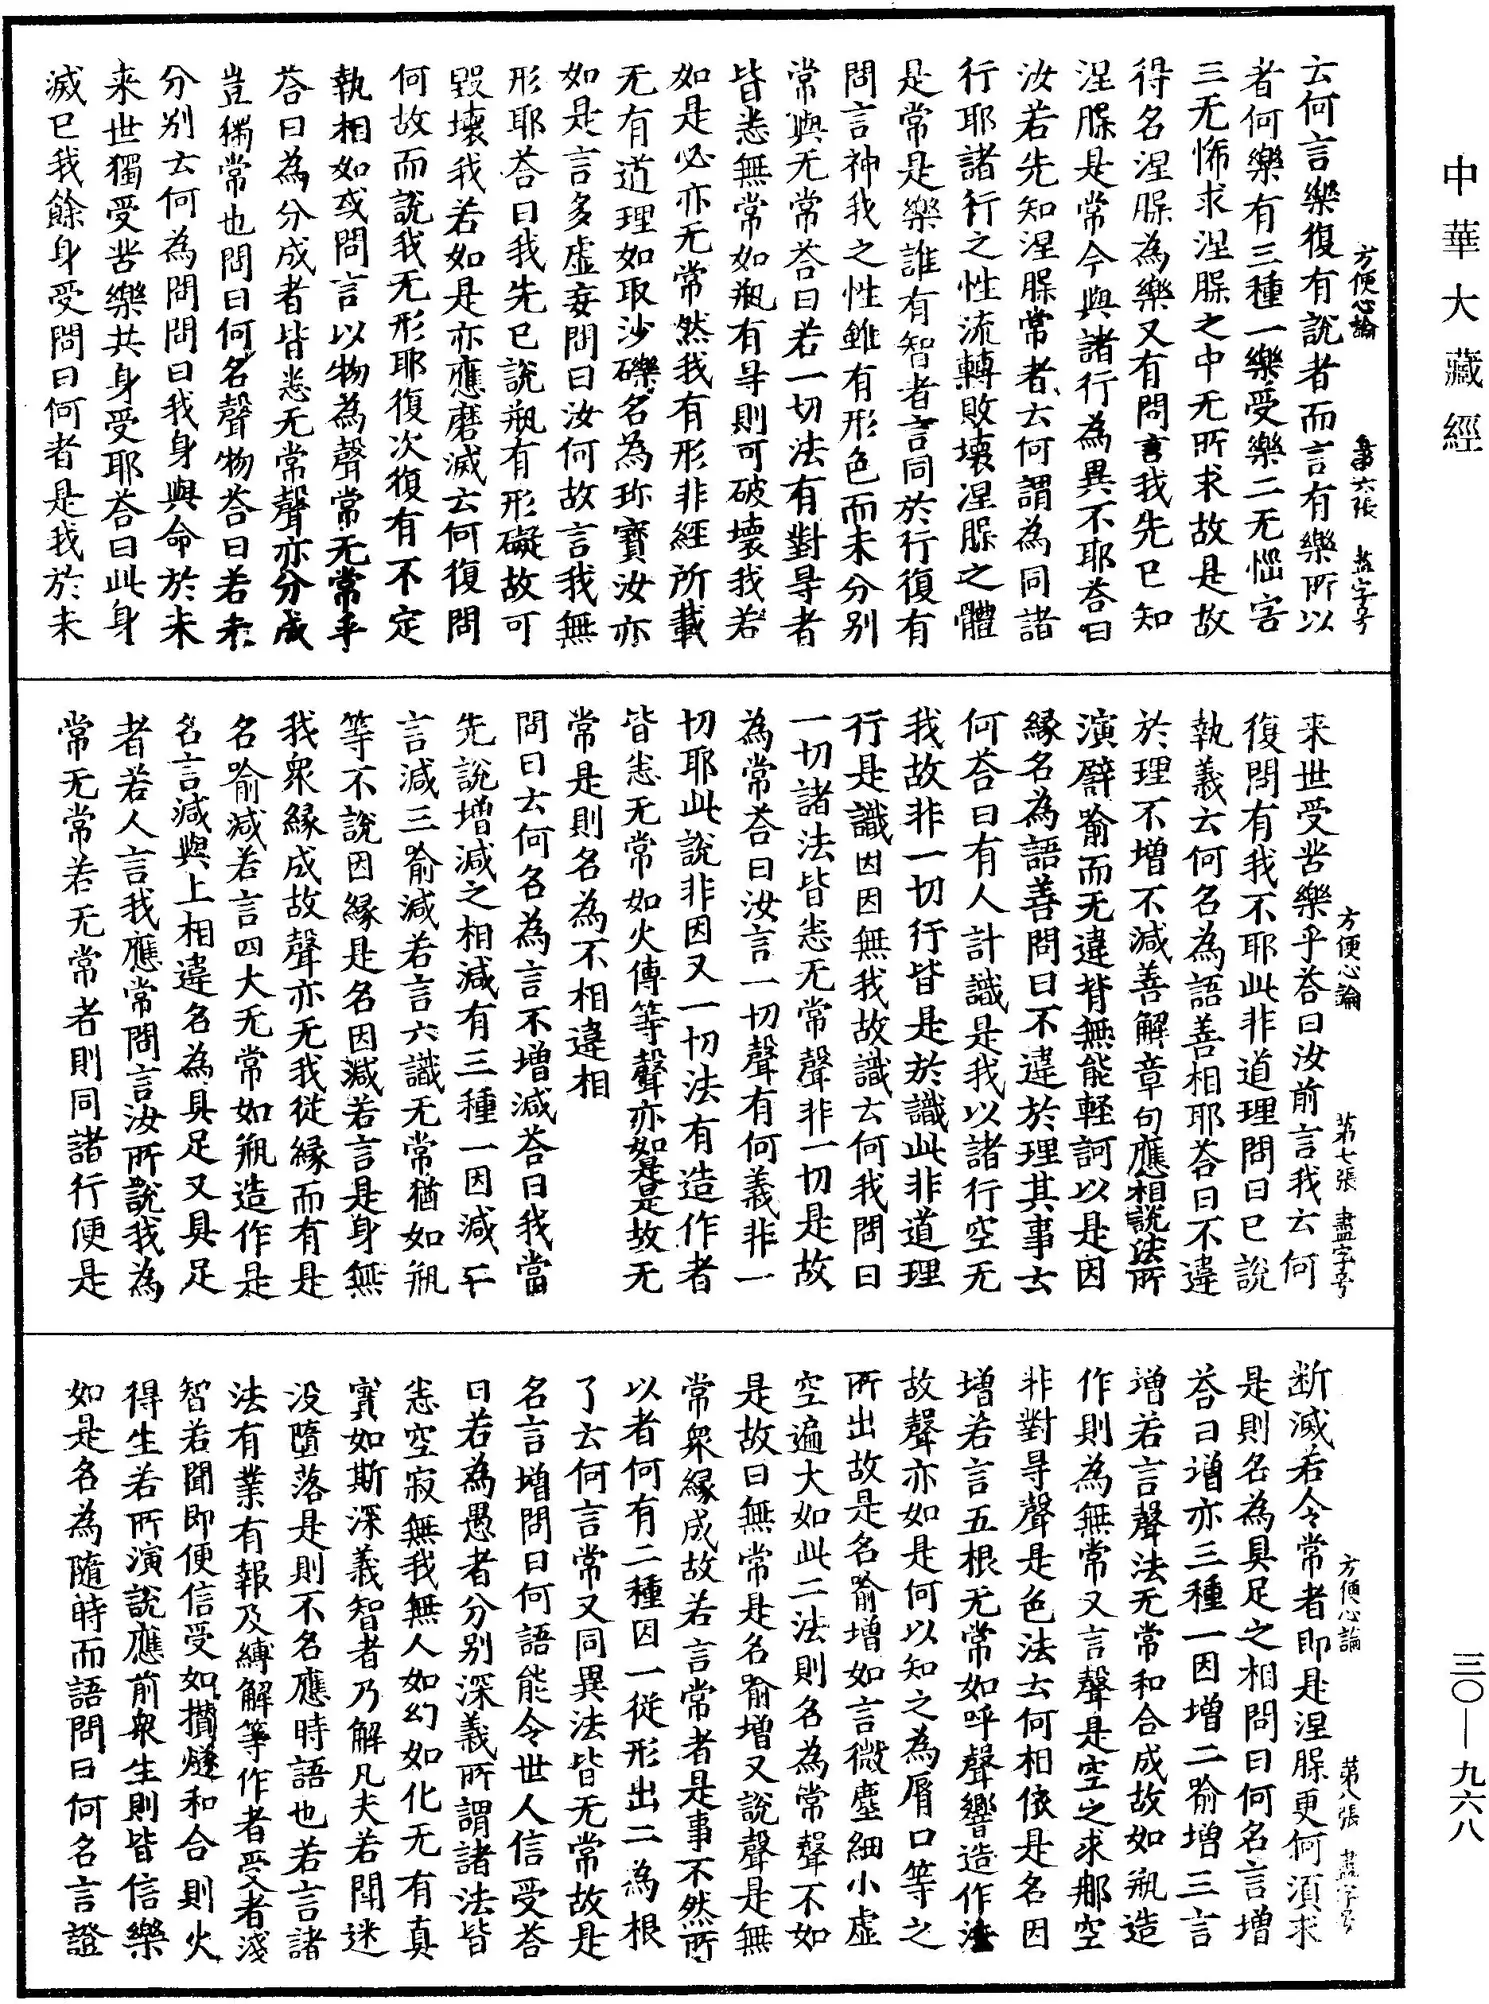 中華大藏經
三〇—九六八
方便心論　第六張　盡字号
云何言樂復有說者而言有樂所以
者何樂有三種一樂受樂二无惱害
三无怖求涅槃之中无所求故是故
得名涅槃為樂又有問言我先已知
涅槃是常今與諸行為異不耶荅曰
汝若先知涅槃常者云何謂為同諸
行耶諸行之性流轉敗壞涅槃之體
是常是樂誰有智者言同於行復有
問言神我之性雖有形色而未分別
常與无常荅曰若一切法有對㝵者
皆悉無常如瓶有㝵則可破壞我若
如是必亦无常然我有形非經所載
无有道理如取沙礫名為珎寶汝亦
如是言多虛妄問曰汝何故言我無
形耶荅曰我先已說瓶有形礙故可
毀壞我若如是亦應磨滅云何復問
何故而說我无形耶復次復有不定
執相如或問言以物為聲常无常乎
荅曰為分成者皆悉无常聲亦分成
豈獨常也問曰何名聲物荅曰若未
分別云何為問問曰我身與命於未
来世獨受苦樂共身受耶荅曰此身
滅已我餘身受問曰何者是我於未
方便心論　第七張　盡字号
来世受苦樂乎荅曰汝前言我云何
復問有我不耶此非道理問曰已說
執義云何名為語善相耶荅曰不違
於理不增不減善解章句應相說法所
演譬喻而无違背無能軽訶以是因
緣名為語善問曰不違於理其事云
何荅曰有人計識是我以諸行空无
我故非一切行皆是於識此非道理
行是識因因無我故識云何我問曰
一切諸法皆悉无常聲非一切是故
為常荅曰汝言一切聲有何義非一
切耶此說非因又一切法有造作者
皆悉无常如火傳等聲亦如是是故无
常是則名為不相違相
問曰云何名為言不增減荅曰我當
先說增減之相減有三種一因減二
言減三喻減若言六識无常猶如瓶
等不說因緣是名因減若言是身無
我衆緣成故聲亦无我從緣而有是
名喻減若言四大无常如瓶造作是
名言減與上相違名為具足又具足
者若人言我應常問言汝所說我為
常无常若无常者則同諸行便是
方便心論　第八張　盡字号
断滅若令常者即是涅槃更何須求
是則名為具足之相問曰何名言增
荅曰增亦三種一因增二喻增三言
增若言聲法无常和合成故如瓶造
作則為無常又言聲是空之求那空
非對㝵聲是色法云何相依是名因
增若言五根无常如呼聲響造作法
故聲亦如是何以知之為脣口等之
所出故是名喻增如言微塵細小虛
空遍大如此二法則名為常聲不如
是故曰無常是名喻增又說聲是無
常衆緣成故若言常者是事不然所
以者何有二種因一從形出二為根
了云何言常又同異法皆无常故是
名言增問曰何語能令世人信受荅
曰若為愚者分別深義所謂諸法皆
悉空寂無我無人如幻如化无有真
實如斯深義智者乃解凡夫若聞迷
没墮落是則不名應時語也若言諸
法有業有報及縛解等作者受者淺
智若聞即便信受如攢燧和合則火
得生若所演說應前衆生則皆信樂
如是名為隨時而語問曰何名言證